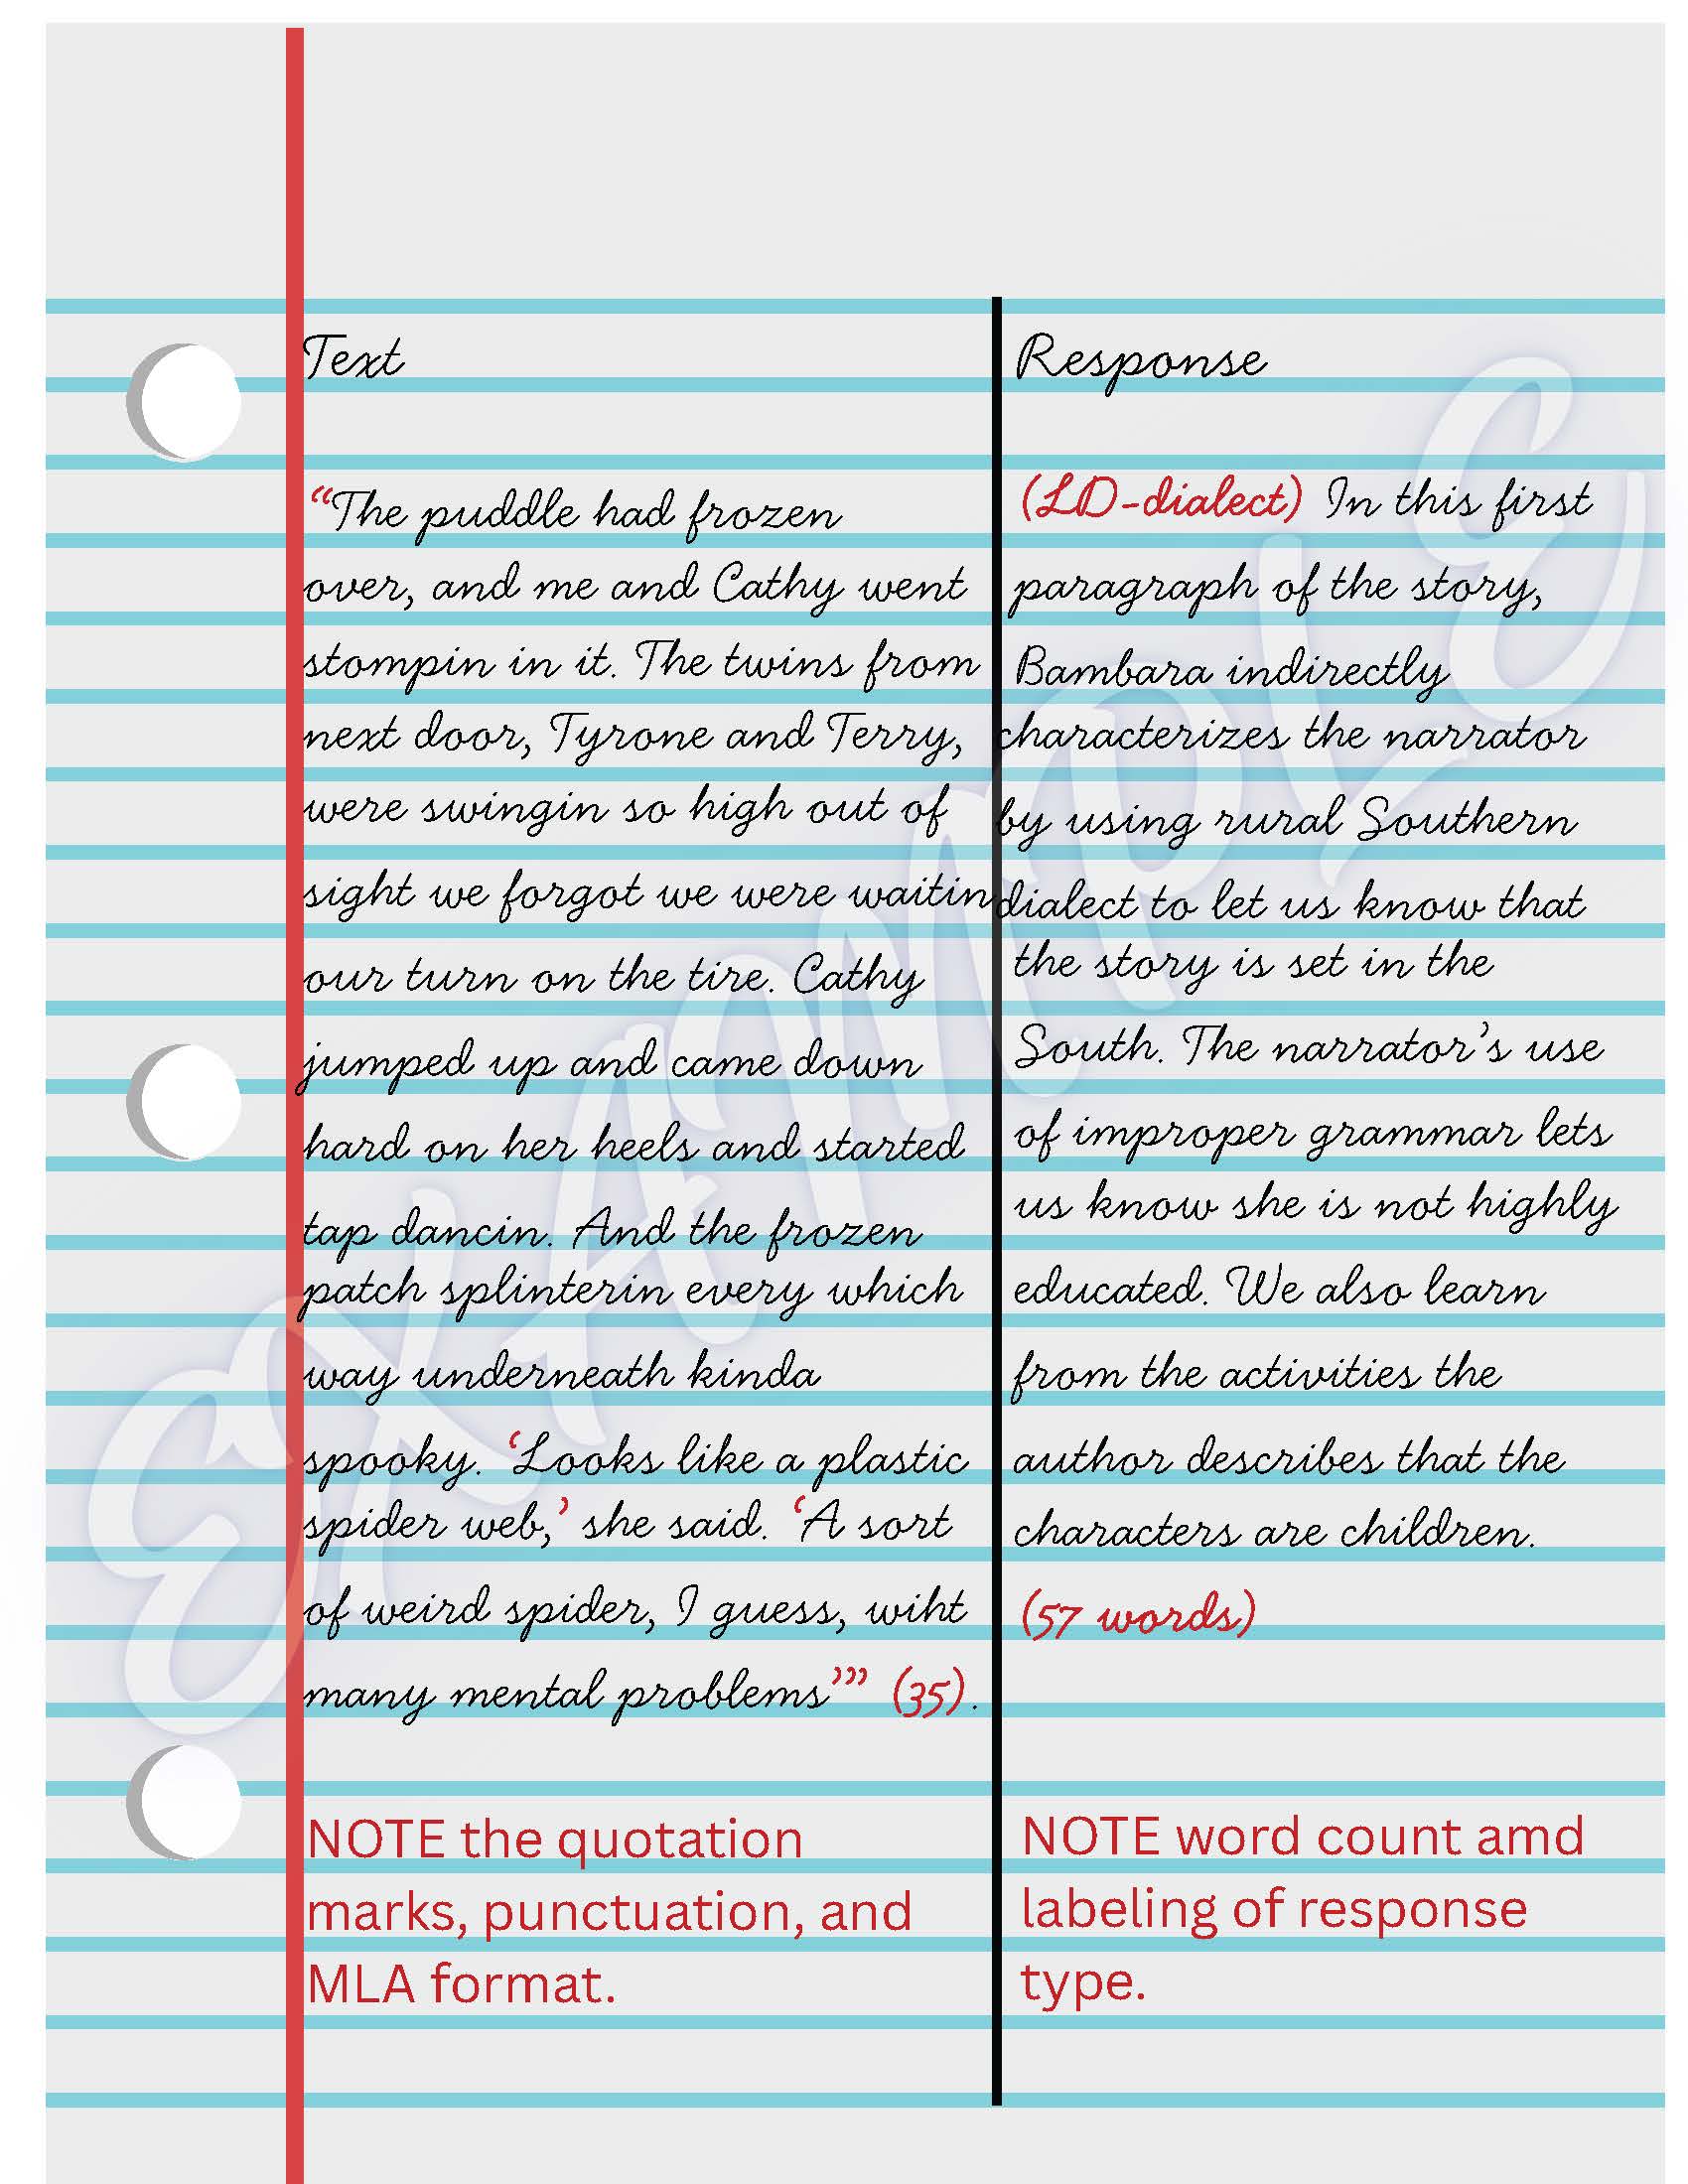 Text
"The puddle had frozen
over, and me and Cathy went
stompin in it. The twins from
next door, Tyrone and Terry,
were swingin so high out of
sight we forgot we were waitin
our turn on the tire. Cathy
jumped up and came down
hard on her heels and started
tap dancin. And the frozen
patch splinterin every which
way underneath kinda
spooky. ‘Looks like a plastic
spider web,’ she said. ‘A sort
of weird spider, I guess, wiht
many mental problems’” (35).
NOTE the quotation
marks, punctuation, and
MLA format.
Response
(LD-dialect) In this first
paragraph of the story,
Bambara indirectly
characterizes the narrator
by using rural Southern
dialect to let us know that
the story is set in the
South. The narrator’s use
of improper grammar lets
us know she is not highly
educated. We also learn
from the activities the
author describes that the
characters are children.
(57 words)
NOTE word count amd
labeling of response
type.
EXAMPLE